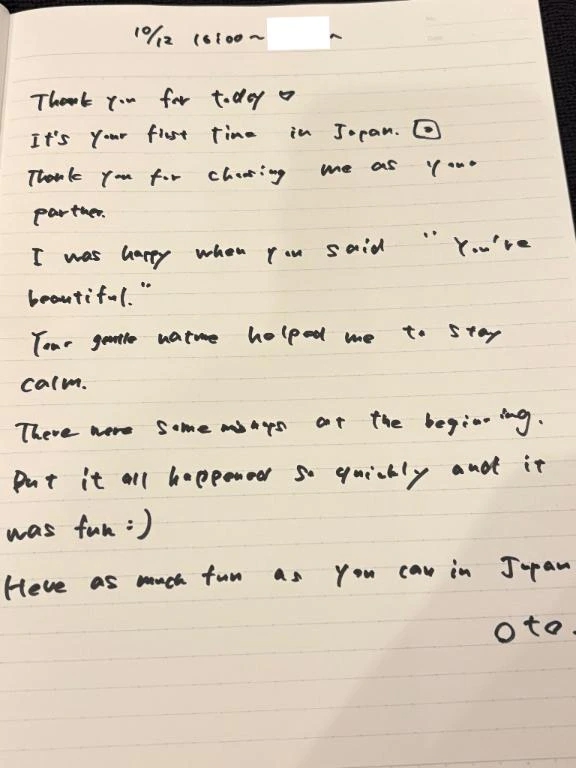 10/12 16:00~ ~
Thank you for today ♡
It's your first time in Japan.
Thank you for choosing me as your
partner.
I was happy when you said "You're
beautiful."
Your gentle nature helped me to stay
calm.
There were some at the beginning.
But it all happened so quickly and it
was fun :)
Have as much fun as you can in Japan
oto.